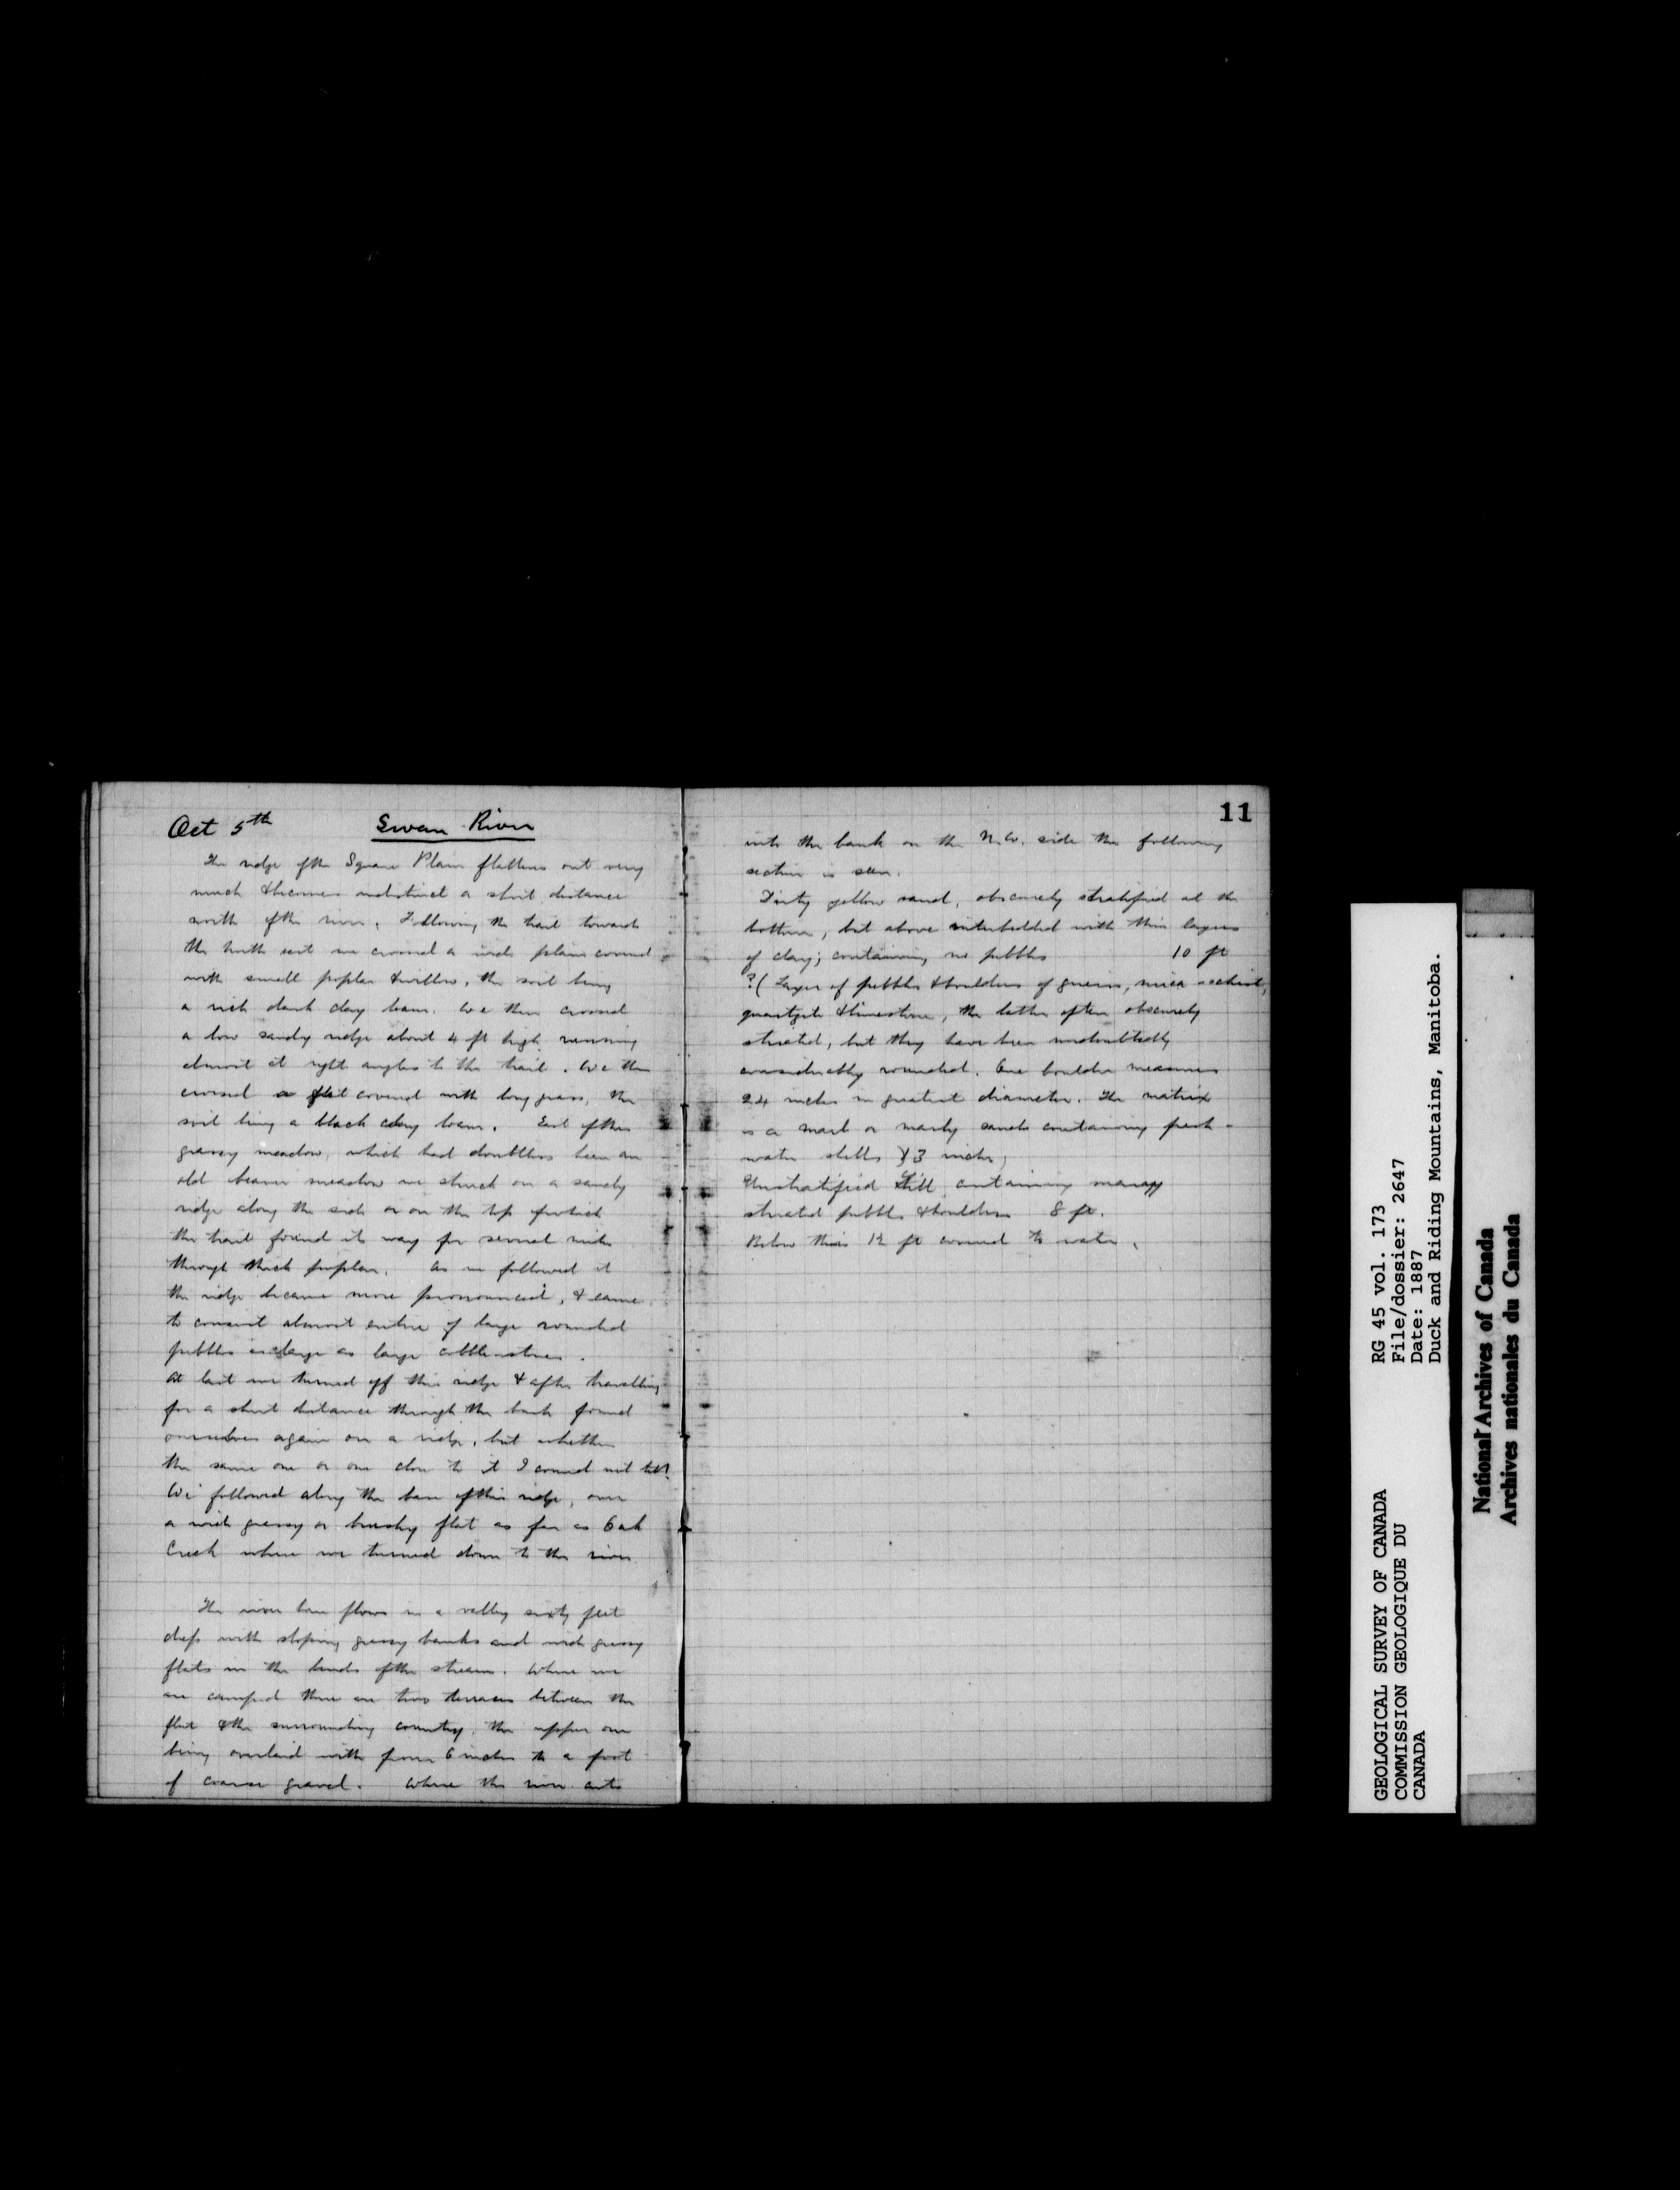 Oct 5th Swan River
The ridge of the Square Plain flattens out very
much & becomes indistinct a short distance
north of the river. Following the trail towards
the north east we crossed a wide plain covered
with small poplar & willow, the soil being
a rich dark clay loam. We then crossed
a low sandy ridge about 4 ft high running
almost at right angles to the trail. We then
crossed a flat covered with long grass, the
soil being a black clay loam. East of this
grassy meadow, which had doubtless been an
old beaver meadow we struck on a sandy
ridge along the side or on the top of which
the trail found its way for several miles
through thick poplar. As we followed it
the ridge became more pronounced, & came
to consist almost entire of large rounded
pebbles as large as large cobble-stones.
At last we turned off this ridge & after travelling
for a short distance through the bush found
ourselves again on a ridge, but whether
the same one or one close to it I could not tell.
We followed along the base of this ridge, over
a wide grassy or brushy flat as far as Oak
Creek where we turned down to the river.
The river here flows in a valley sixty feet
deep with sloping grassy banks and wide grassy
flats in the bends of the stream. Where we
are camped there are two terraces between the
flat & the surrounding country, the upper one
being overlaid with from 6 inches to a foot
of coarse gravel. Where the river cuts
11
into the bank on the N.W. side the following
section is seen.
Dirty yellow sand, obscurely stratified at the
bottom, but above interbedded with thin layers
of clay; containing no pebbles 10 ft
?( Layer of pebbles & boulders of gneiss, mica schist,
quartzite & limestone, the latter often obscurely
striated, but they have been undoubtedly
considerably rounded. One boulder measures
24 inches in greatest diameter. The matrix
is a marl or marly sand containing fresh-
water shells 3 inches
Unstratified till containing many
striated pebbles & boulders 8 ft.
Below this 12 ft covered to water.
GEOLOGICAL SURVEY OF CANADA
COMMISSION GEOLOGIQUE DU
CANADA
RG 45 vol. 173
File/dossier: 2647
Date: 1887
Duck and Riding Mountains, Manitoba.
National Archives of Canada
Archives nationales du Canada